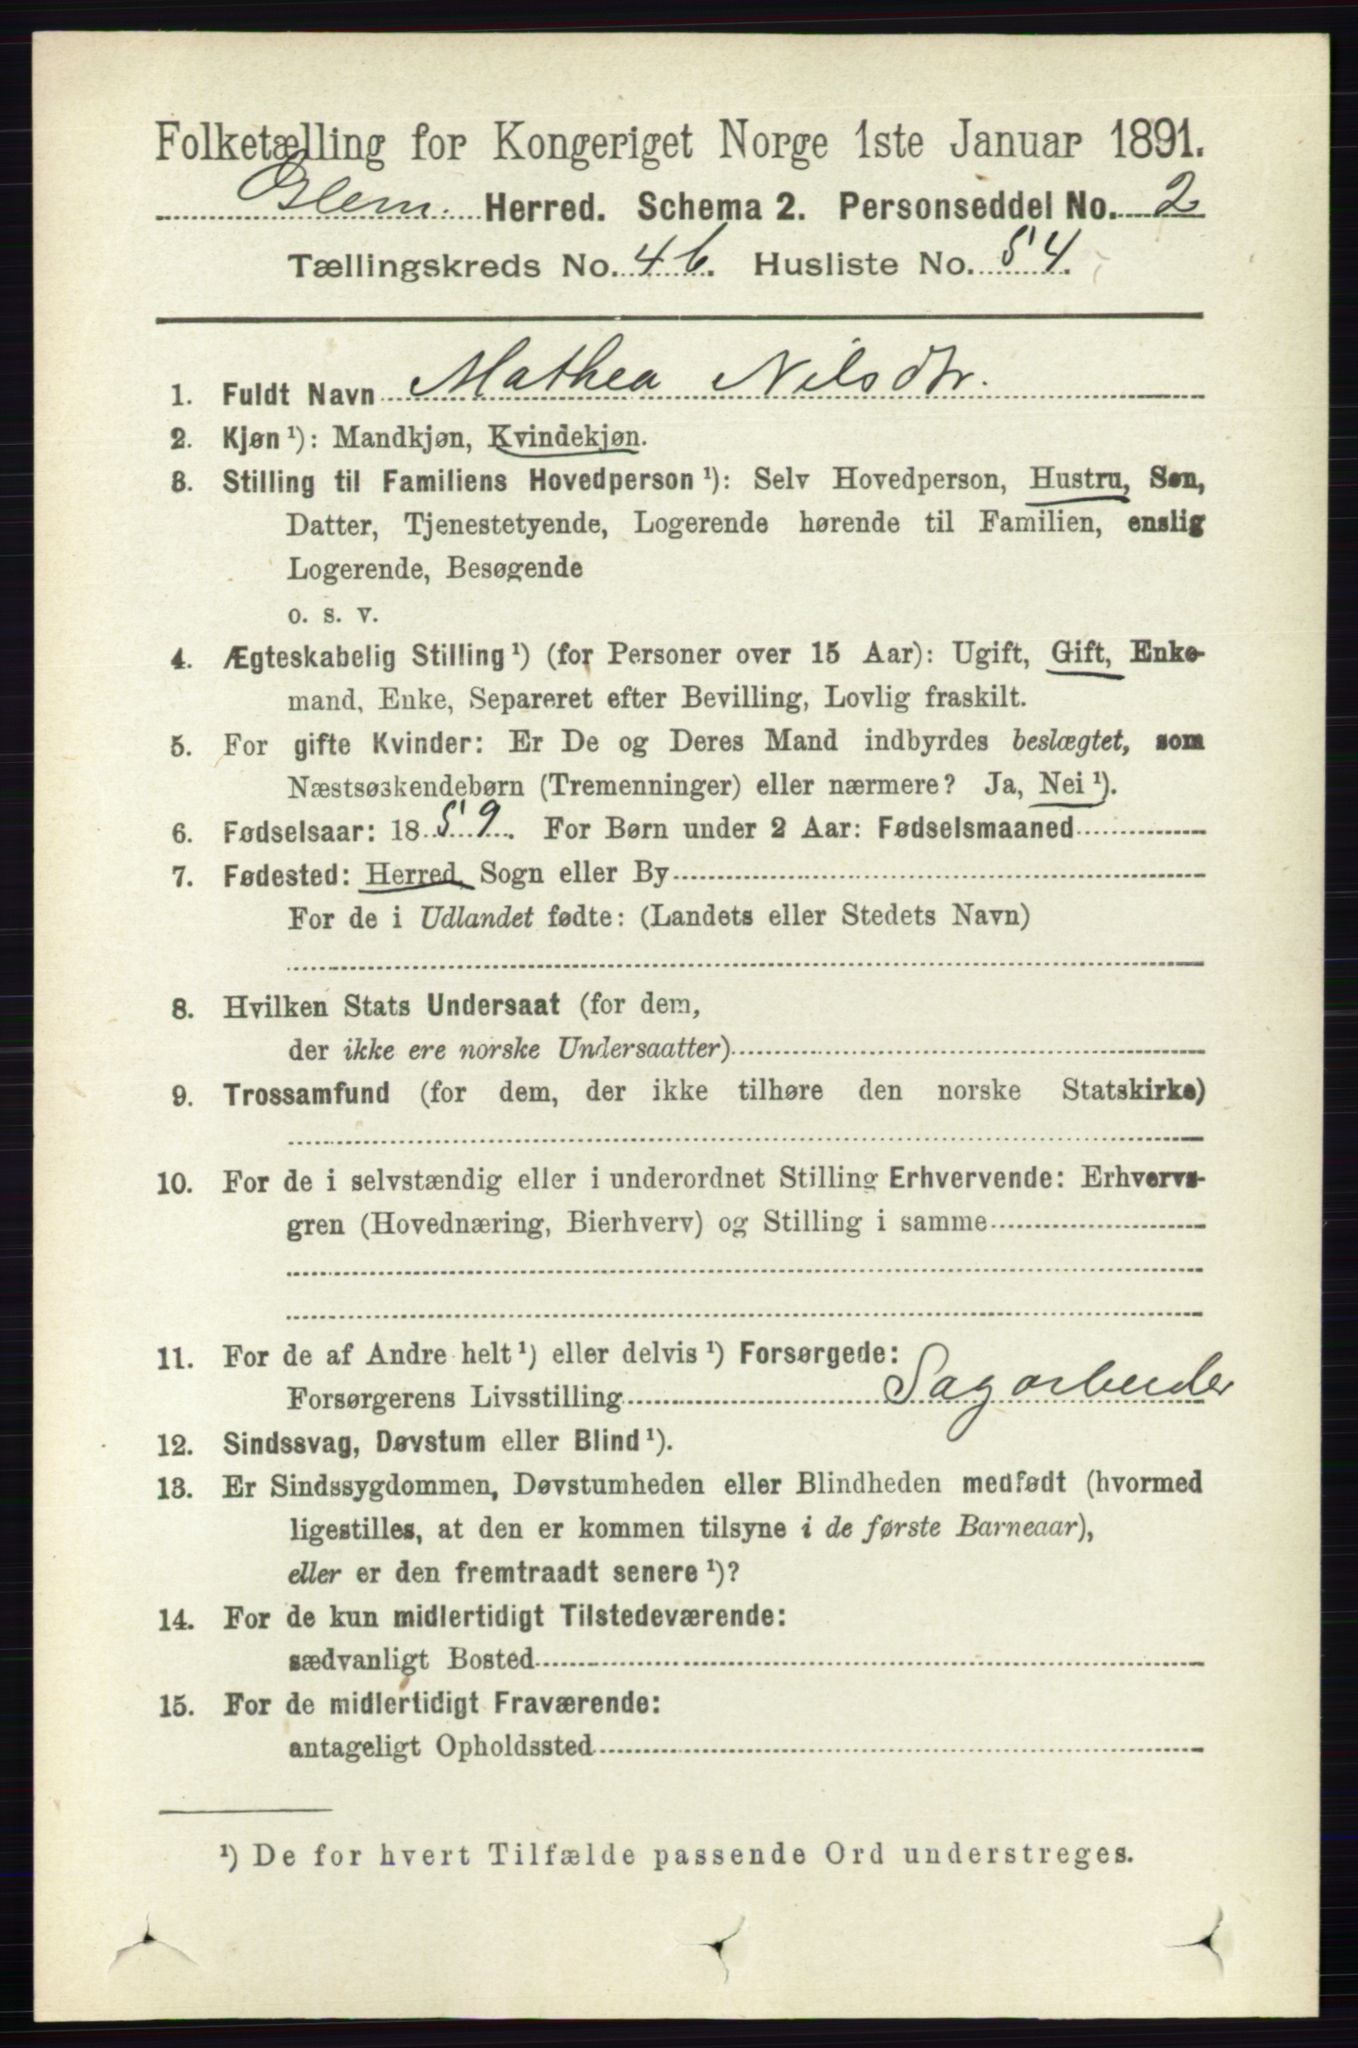 Folketælling for Kongeriget Norge 1ste Januar 1891.
Glem. Herred. Schema 2. Personseddel No. 2
Tællingskreds No. 4 b. Husliste No. 54.
1. Fuldt Navn Mathea Nilsdtr.
2. Kjøn¹): Mandkjøn, Kvindekjøn.
3. Stilling til Familiens Hovedperson¹): Selv Hovedperson, Hustru, Søn,
Datter, Tjenestetyende, Logerende hørende til Familien, enslig
Logerende, Besøgende
o. s. v.
4. Ægteskabelig Stilling¹) (for Personer over 15 Aar): Ugift, Gift, Enke-
mand, Enke, Separeret efter Bevilling, Lovlig fraskilt.
5. For gifte Kvinder: Er De og Deres Mand indbyrdes beslægtet, som
Næstsøskendebørn (Tremenninger) eller nærmere? Ja, Nei¹).
6. Fødselsaar: 1859. For Børn under 2 Aar: Fødselsmaaned
7. Fødested: Herred, Sogn eller By
For de i Udlandet fødte: (Landets eller Stedets Navn)
8. Hvilken Stats Undersaat (for dem,
der ikke ere norske Undersaatter)
9. Trossamfund (for dem, der ikke tilhøre den norske Statskirke)
10. For de i selvstændig eller i underordnet Stilling Erhvervende: Erhvervs-
gren (Hovednæring, Bierhverv) og Stilling i samme
11. For de af Andre helt¹) eller delvis¹) Forsørgede:
Forsørgerens Livsstilling Sagarbeider
12. Sindssvag, Døvstum eller Blind¹).
13. Er Sindssygdommen, Døvstumheden eller Blindheden medfødt (hvormed
ligestilles, at den er kommen tilsyne i de første Barneaar),
eller er den fremtraadt senere¹)?
14. For de kun midlertidigt Tilstedeværende:
sædvanligt Bosted
15. For de midlertidigt Fraværende:
antageligt Opholdssted
¹) De for hvert Tilfælde passende Ord understreges.